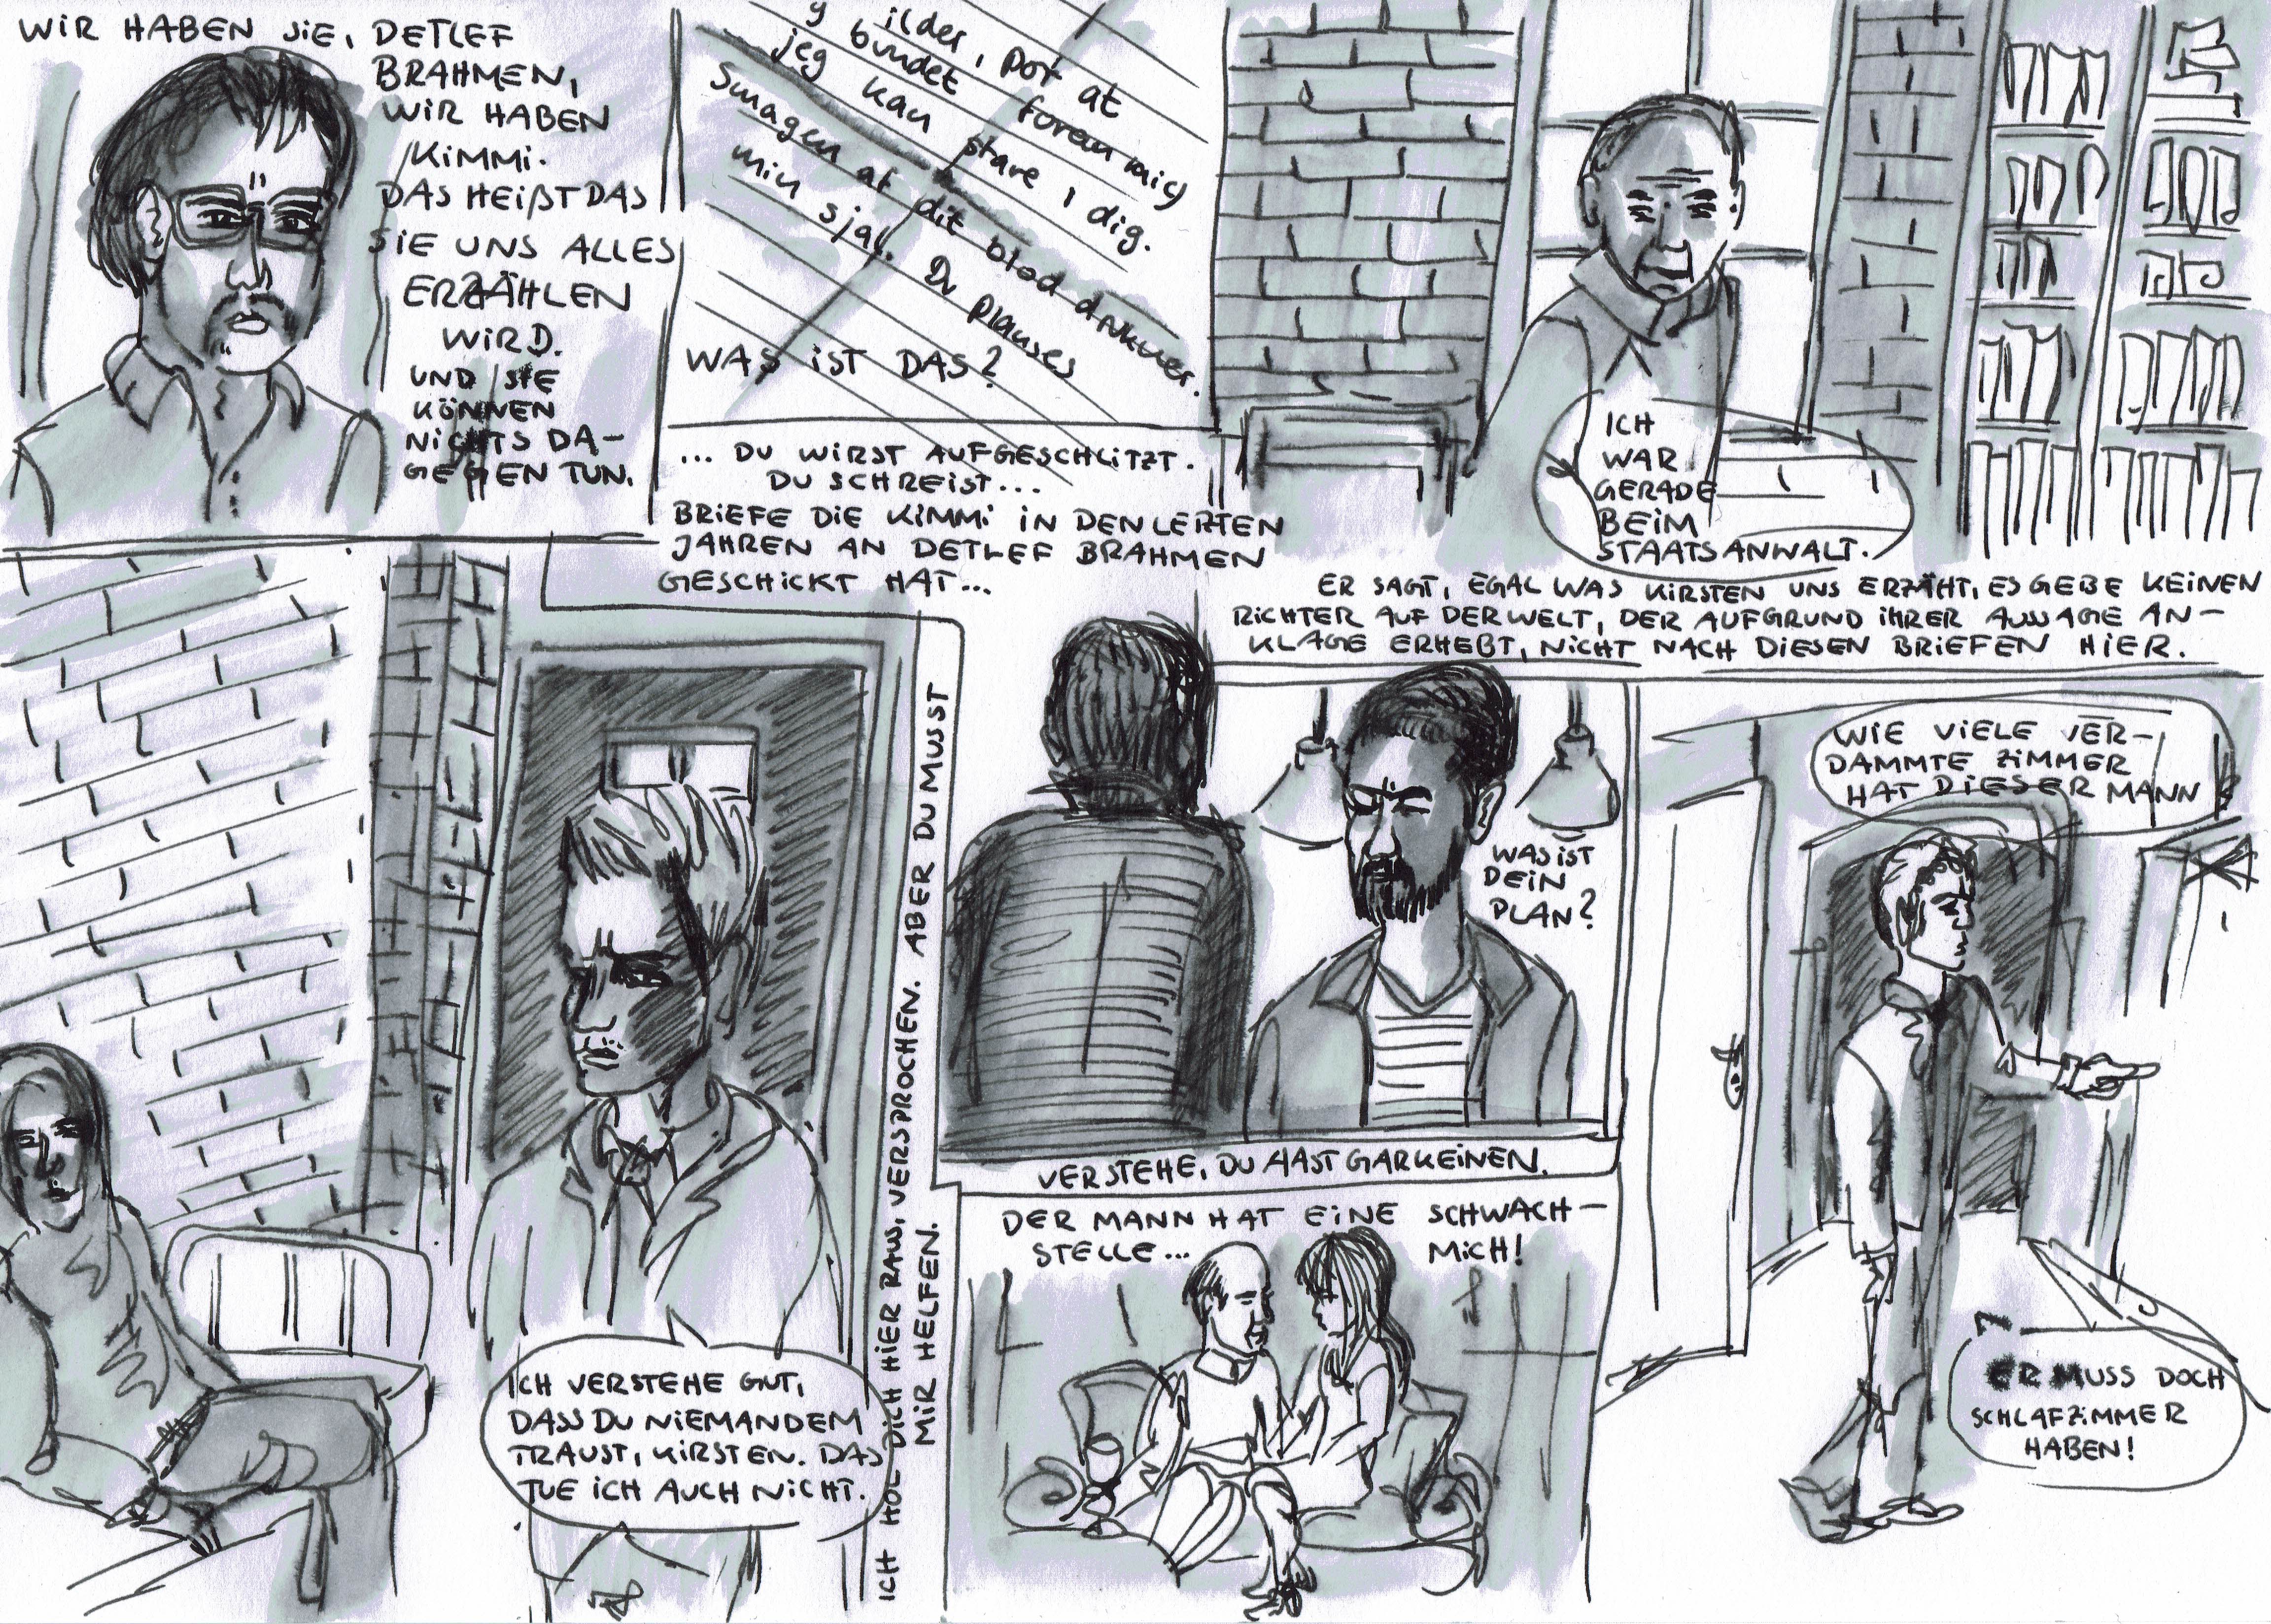 WIR HABEN SIE, DETLEF
BRAHMEN,
WIR HABEN
KIMMI.
DAS HEIßT DAS
SIE UNS ALLES
ERZÄHLEN
WIRD.
UND SIE
KÖNNEN
NICHTS DA-
GEGEN TUN.
ilder, por at
y bundet foran mig
jeg kan stare i dig.
Smagen at dit blod drukner.
min sjal. Du
WAS IST DAS?
... DU WIRST AUFGESCHLITZT.
DU SCHREIST...
BRIEFE DIE KIMMI IN DEN LETZTEN
JAHREN AN DETLEF BRAHMEN
GESCHICKT HAT...
ICH
WAR
GERADE
BEIM
STAATSANWALT.
ER SAGT, EGAL WAS KIRSTEN UNS ERZÄHT, ES GEBE KEINEN
RICHTER AUF DER WELT, DER AUFGRUND IHRER AUSSAGE AN-
KLAGE ERHEBT, NICHT NACH DIESEN BRIEFEN HIER.
ICH VERSTEHE GUT,
DASS DU NIEMANDEM
TRAUST, KIRSTEN. DAS
TUE ICH AUCH NICHT.
ICH HOL DICH HIER RAUS, VERSPROCHEN. ABER DU MUSST
MIR HELFEN.
WAS IST
DEIN
PLAN?
VERSTEHE, DU HAST GARKEINEN.
DER MANN HAT EINE SCHWACH-
STELLE... MICH!
WIE VIELE VER-
DAMMTE ZIMMER
HAT DIESER MANN
ER MUSS DOCH
SCHLAFZIMMER
HABEN!